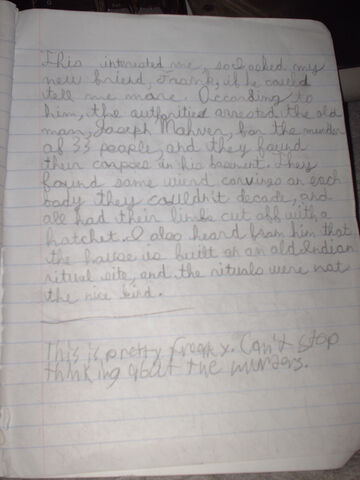 This interested me, so I asked my
new friend, Frank, if he could
tell me more. According to
him, the authorities arrested the old
man, Joseph Mahven, for the murder
of 33 people, and they found
their corpses in his basement. They
found some wierd carvings on each
body they couldn't decode, and
all had their limbs cut off with a
hatchet. I also heard from him that
the house is built on an old Indian
ritual site, and the rituals were not
the nice kind.
This is pretty freaky. Can't stop
thinking about the murders.